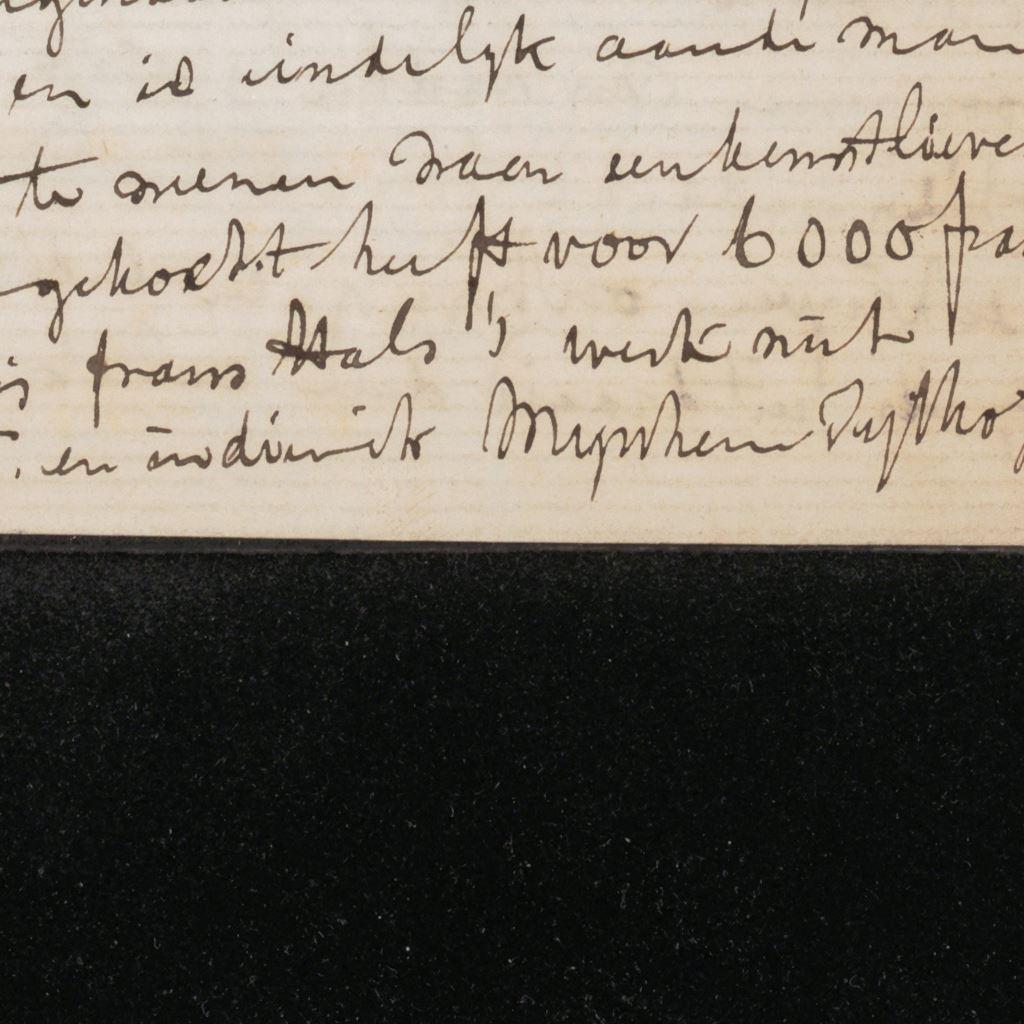 en is eindelyk aan de man
te meenen maar een kunstlieve
gekocht heeft voor 6000 fra
is frans Hals's werk niet
en indien ik Mynheer